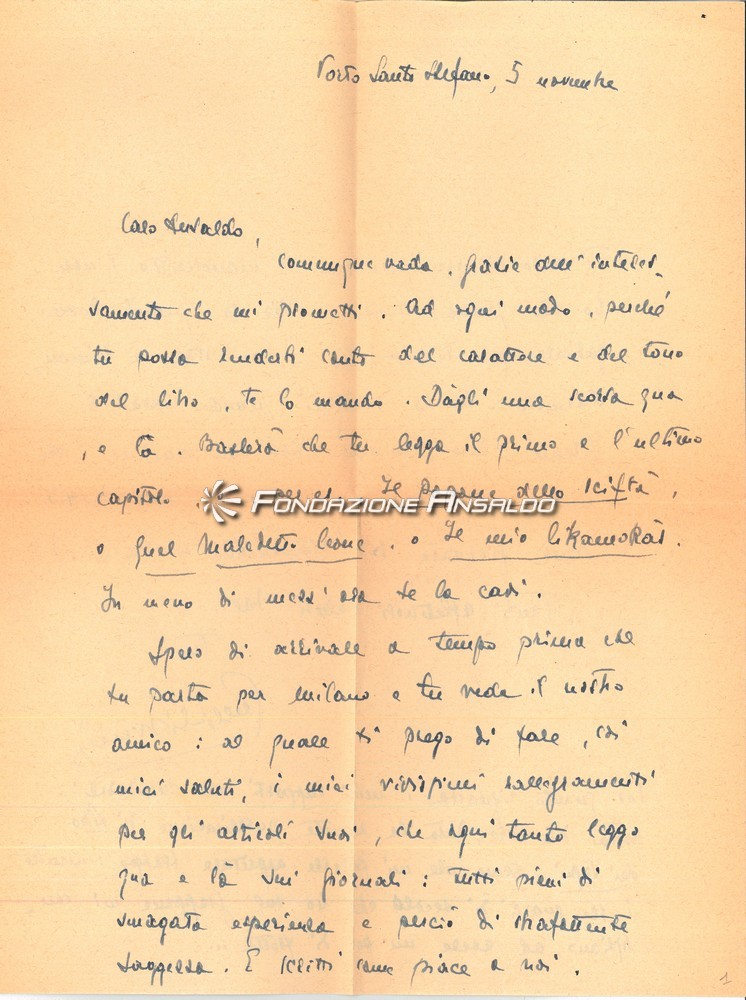 Porto Santo Stefano, 5 novembre
Caro Ansaldo,
comunque vada, grazie dell'interes-
samento che mi prometti. Ad ogni modo, perché
tu possa renderti conto del carattere e del tono
del libro, te lo mando. Dàgli una scorsa qua
e là. Basterà che tu legga il primo e l'ultimo
capitolo, per es. Il dello Sciftà,
FONDAZIONE ANSALDO
o Quel Maledetto Leone, o Il mio likamokàs.
In meno di mezz'ora te la cavi.
Spero di arrivare a tempo prima che
tu parta per Milano e tu veda il nostro
amico: al quale ti prego di fare, coi
miei saluti, i miei vivissimi rallegramenti
per gli articoli suoi, che ogni tanto leggo
qua e là sui giornali: tutti pieni di
smagata esperienza e perciò di strafottente
saggezza. E scritti come piace a noi.
1